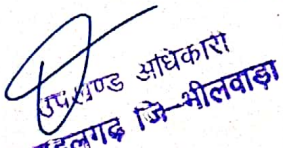 उपखण्ड अधिकारी
जि-भीलवाड़ा